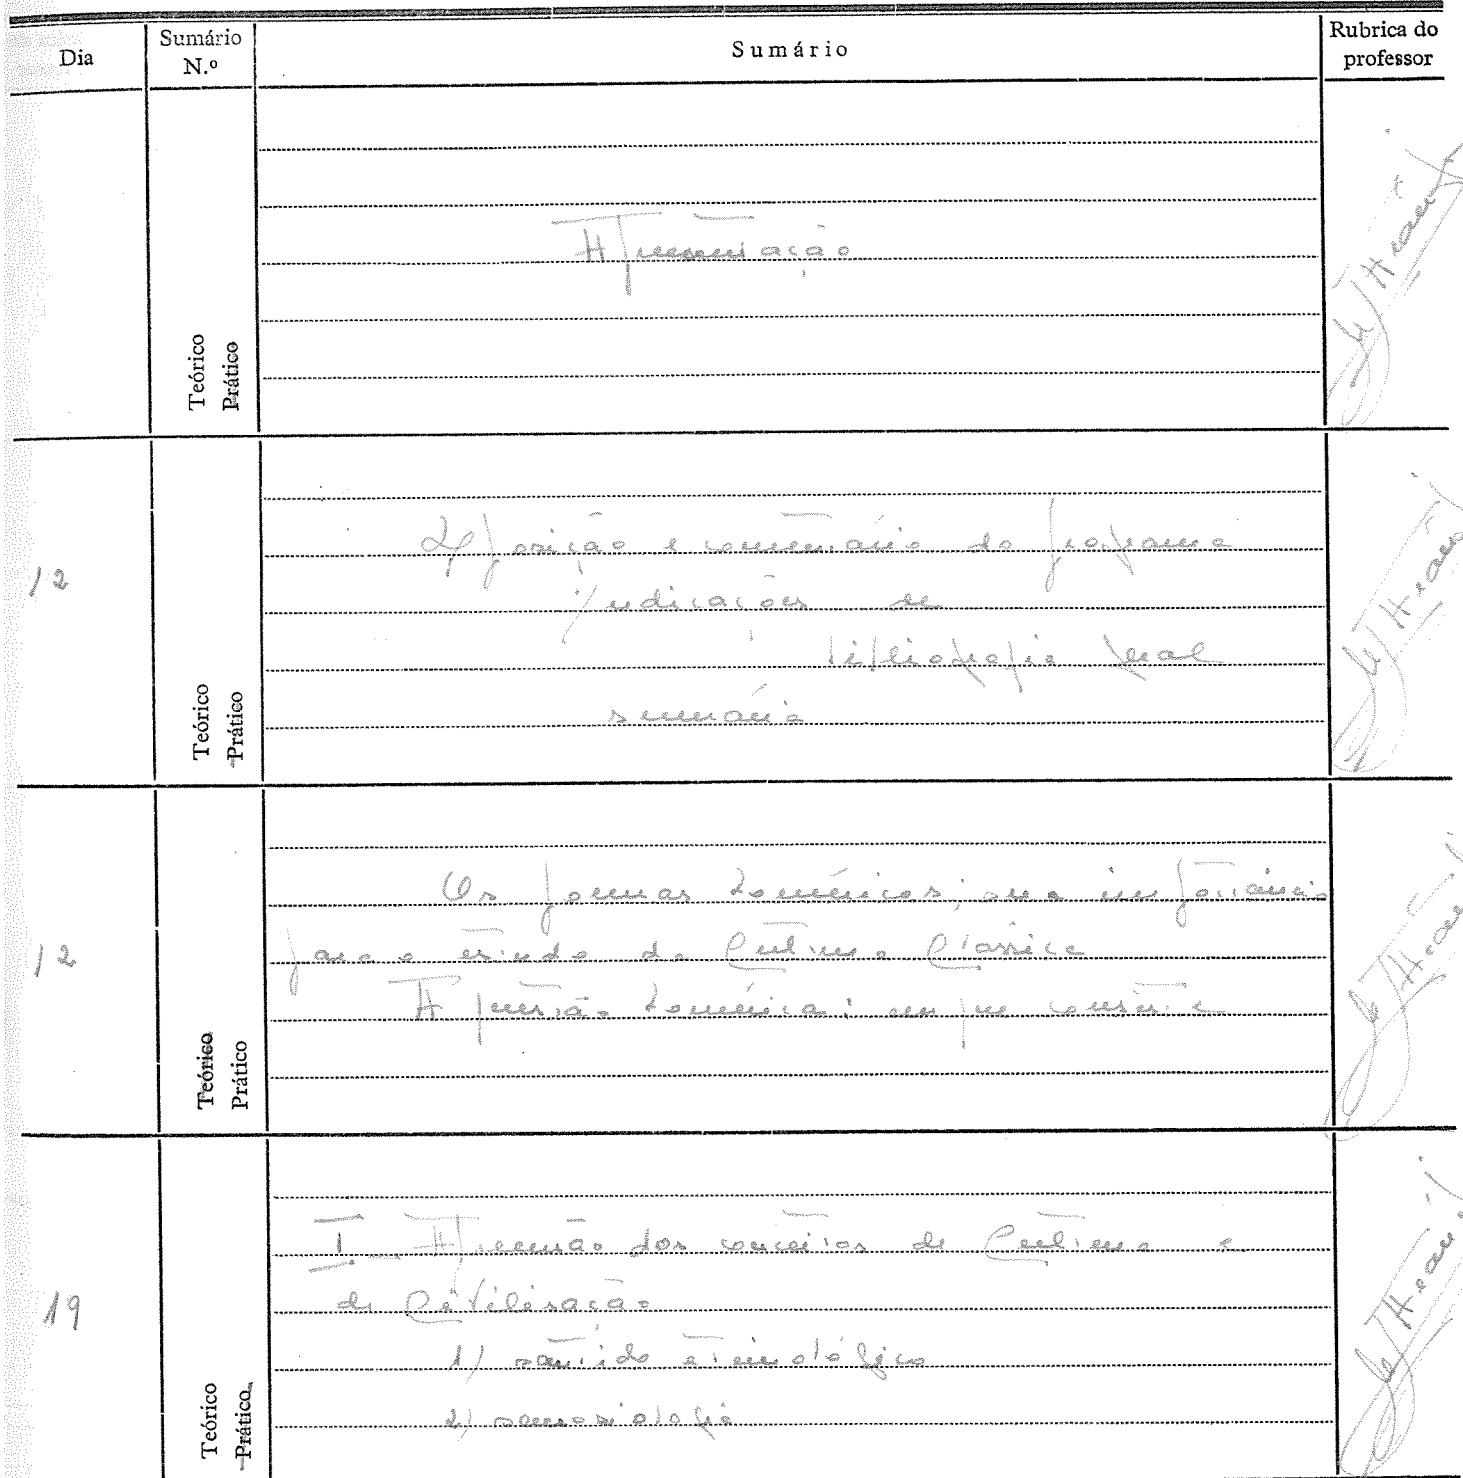 Dia
Sumário N.º
Sumário
Rubrica do professor
Apresentação
Teórico
Prático
12
Exposição e comentário do programa
Indicações de
bibliografia geral
sumária
Teórico
Prático
12
Os poemas homéricos; sua importância
para o estudo da Cultura Clássica
A questão homérica: em que consiste
Teórico
Prático
19
I - A questão dos conceitos de Cultura e
de Civilização
1) sentido etimológico
2) semasiologia
Teórico
Prático